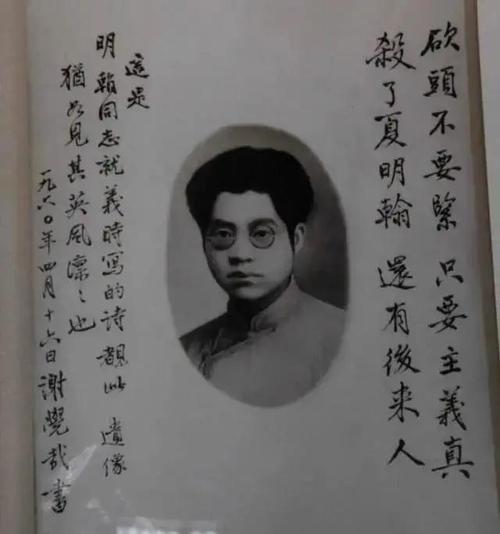 欲頭不要緊 只要主義真
殺了夏明翰 還有後来人
這是
明翰同志就義時寫的詩 覩此遺像
猶如見其英風凛〻也
一九六〇年四月十六日謝覺哉書